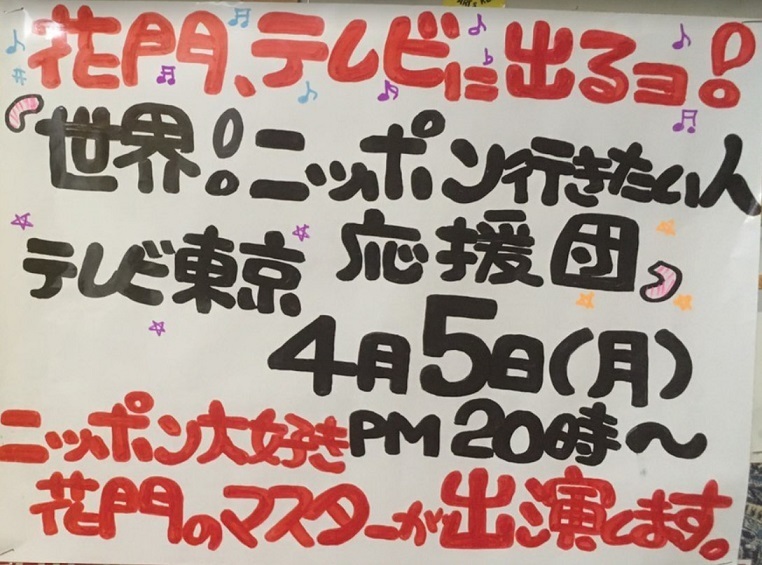 花門、テレビに出るヨ!
『世界!ニッポン行きたい人
応援団』
テレビ東京
4月5日(月)
PM 20時〜
ニッポン大好き
花門のマスターが出演します。